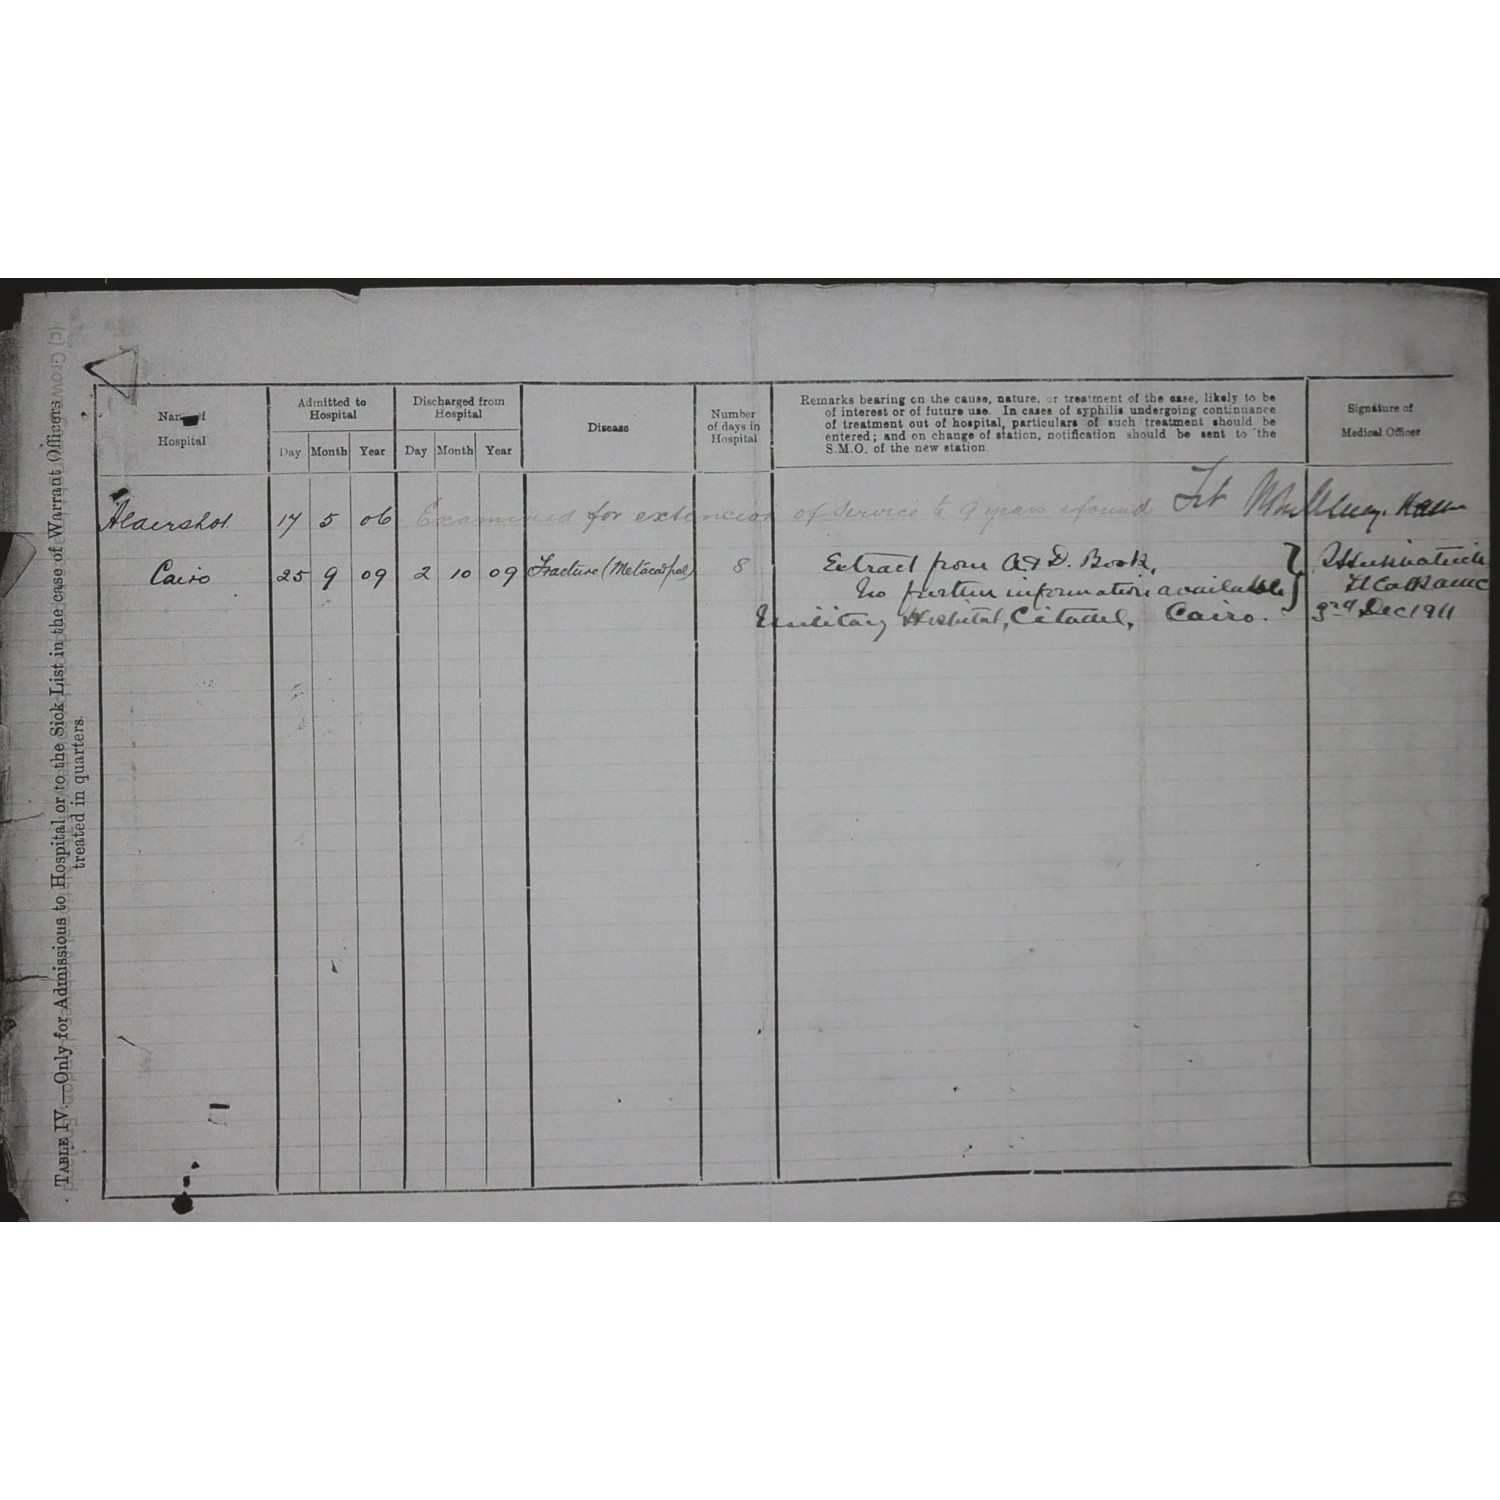 TABLE IV.—Only for Admissions to Hospital or to the Sick List in the case of Warrant Officers
treated in quarters.
Name of
Hospital
Admitted to
Hospital
Day Month Year
Discharged from
Hospital
Day Month Year
Disease
Number
of days in
Hospital
Remarks bearing on the cause, nature, or treatment of the case, likely to be
of interest or of future use. In cases of syphilis undergoing continuance
of treatment out of hospital, particulars of such treatment should be
entered; and on change of station, notification should be sent to the
S.M.O. of the new station.
Signature of
Medical Officer
Aldershot 17 5 06 Examined for extension of service to 9 years & found Fit
Cairo 25 9 09 2 10 09 Fracture (Metacarpal) 8 Extract from A & D. Book.
No further information available
Military Hospital, Citadel, Cairo.
3rd Dec 1911